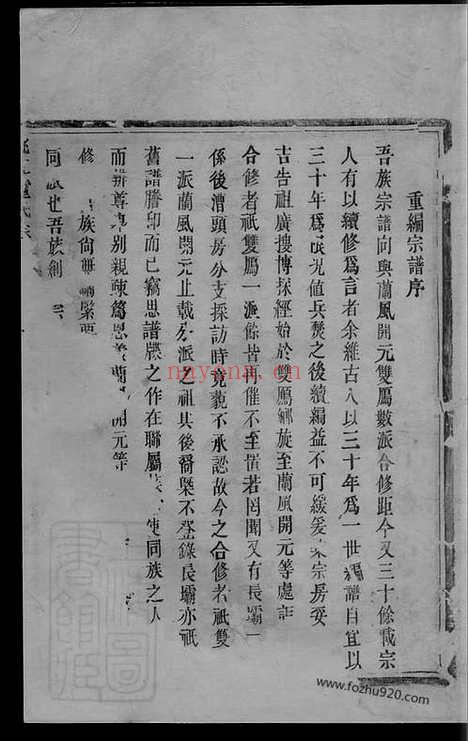 重編宗譜序
吾族宗譜向與蘭風開元雙鴈數派合修距今又三十餘載宗
人有以續修為言者余維古人以三十年為一世編譜自宜以
三十年為 况值兵燹之後續編益不可緩爰 宗房妥
吉告祖廣搜博採經始於雙鴈鄉旋至蘭風開元等處詎
合修者祇雙鴈一派餘皆再催不至惜若罔聞又有長壩一
係後漕頭房分支採訪時竟藐不承認故今之合修者祇雙
一派蘭風開元止載分派之祖其後裔槩不登錄長壩亦祇
舊譜謄印而已竊思譜牒之作在聯屬 使同族之人
而辨尊卑別親疎篤恩 蘭 開元等
修 族尚 緊要
同 也吾族創 宗
nayona.cn
www.fozhu920.com